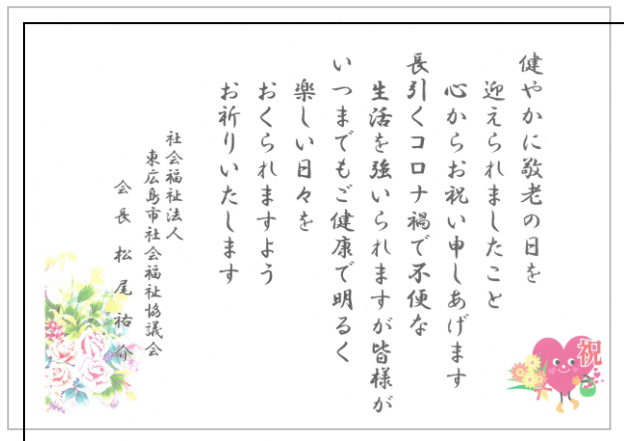 健やかに敬老の日を
迎えられましたこと
心からお祝い申しあげます
長引くコロナ禍で不便な
生活を強いられますが皆様が
いつまでもご健康で明るく
楽しい日々を
おくられますよう
お祈りいたします
社会福祉法人
東広島市社会福祉協議会
会長 松尾祐介
祝